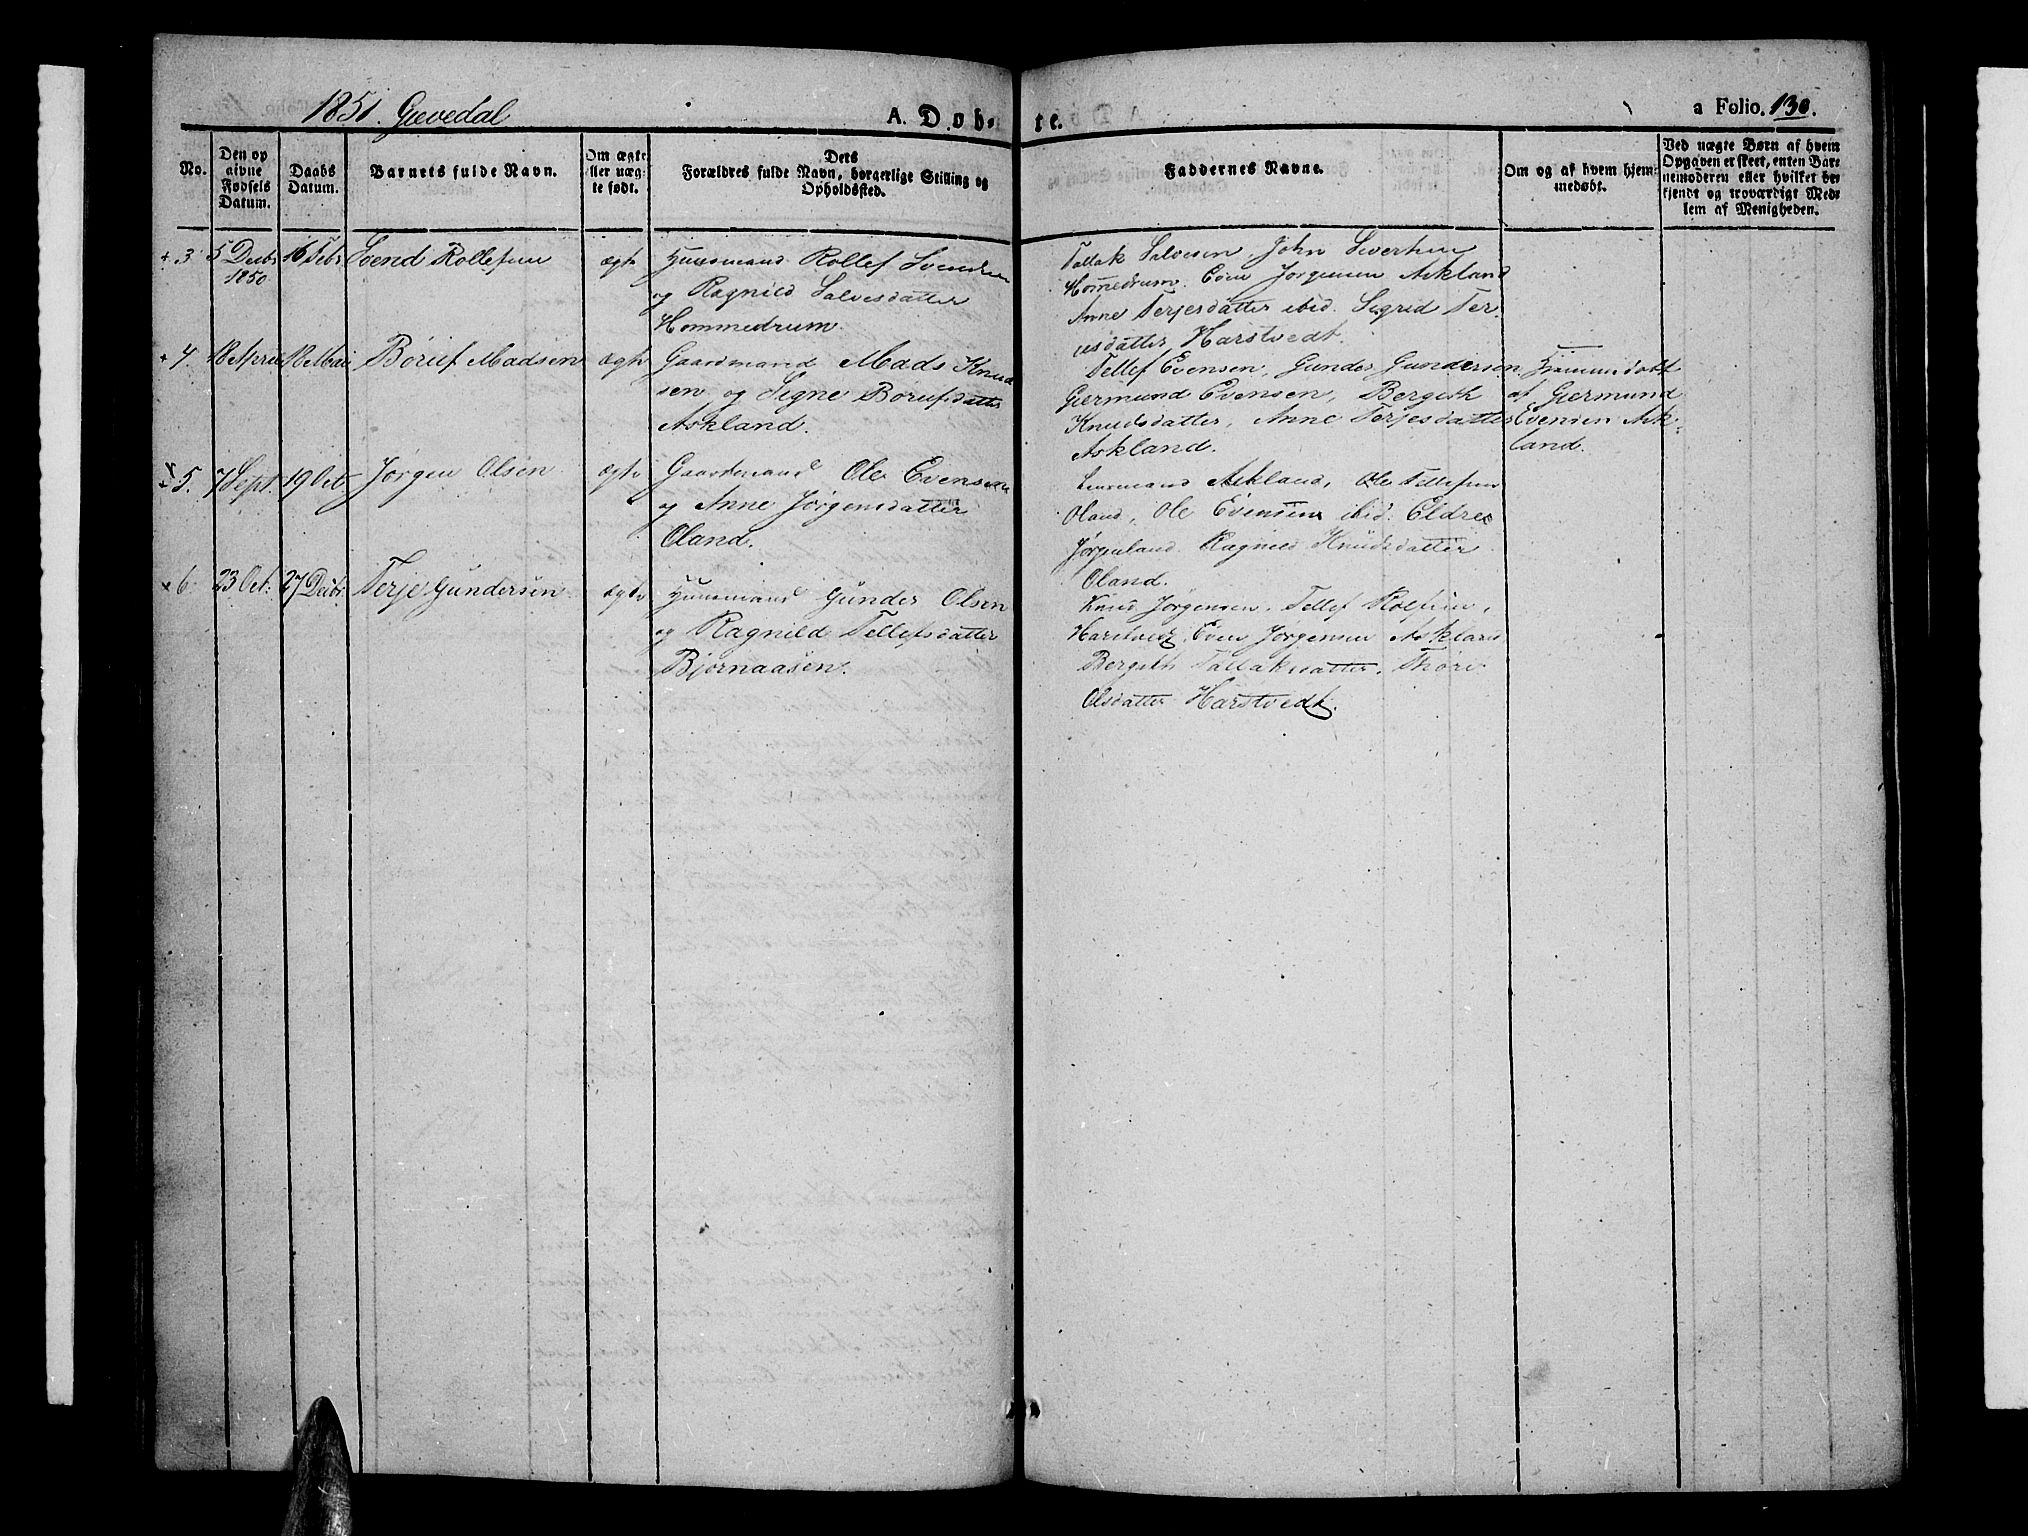 1851. Gjevedal
A. Døbte.
a Folio. 130.
No.
Den op
givne
Fødsels
Datum.
Daabs
Datum.
Barnets fulde Navn.
Om ægte
eller uæg-
te født.
Dets
Forældres fulde Navn, borgerlige Stilling og
Opholdssted.
Faddernes Navne.
Om og af hvem hjem-
medøbt.
Ved uægte Børn af hvem
Opgaven er skeet, enten Bar-
nemoderen eller hvilket be-
kjendt og troværdigt Med-
lem af Menigheden.
3 5 Decbr 16 Febr Svend Rollefsen ægte Huusmand Rollef Svendsen
1850
og Ragnild Salvesdatter
Hommedrum.
Tallak Salvesen, John Sivertsen
Hommedrum. Even Jørgensen Askland
Anne Terjesdatter ibid. Sigrid Ter-
jesdatter Harstvedt.
4. 18 April 18 Mai Børuf Madsen ægte Gaardmand Mads Knud
sen og Signe Børufsdatter
Askland.
Tellef Evensen, Gunder Gundersen
Gjermund Evensen, Bergith
Knudsdatter, Anne Terjesdatter
Askland.
Hjemmedøbt
af Gjermund
Evensen Ask-
land.
5. 7 Sept. 19 Oct Jørgen Olsen ægte Gaardmand Ole Evensen
og Anne Jørgensdatter
Oland.
Lensmand Askland, Ole Tellefsen
Oland, Ole Evensen ibid. Eldrec
Ragnild Knudsdatter
Oland.
6 23 Oct: 27 Decbr. Terje Gundersen ægte Huusmand Gunder Olsen
og Ragnild Tellefsdatter
Bjørnaasen.
Knud Jørgensen, Tellef Rolfsen,
Harstvedt, Even Jørgensen Askland
Bergith Tallaksdatter, Thore
Olsdatter Harstvedt.